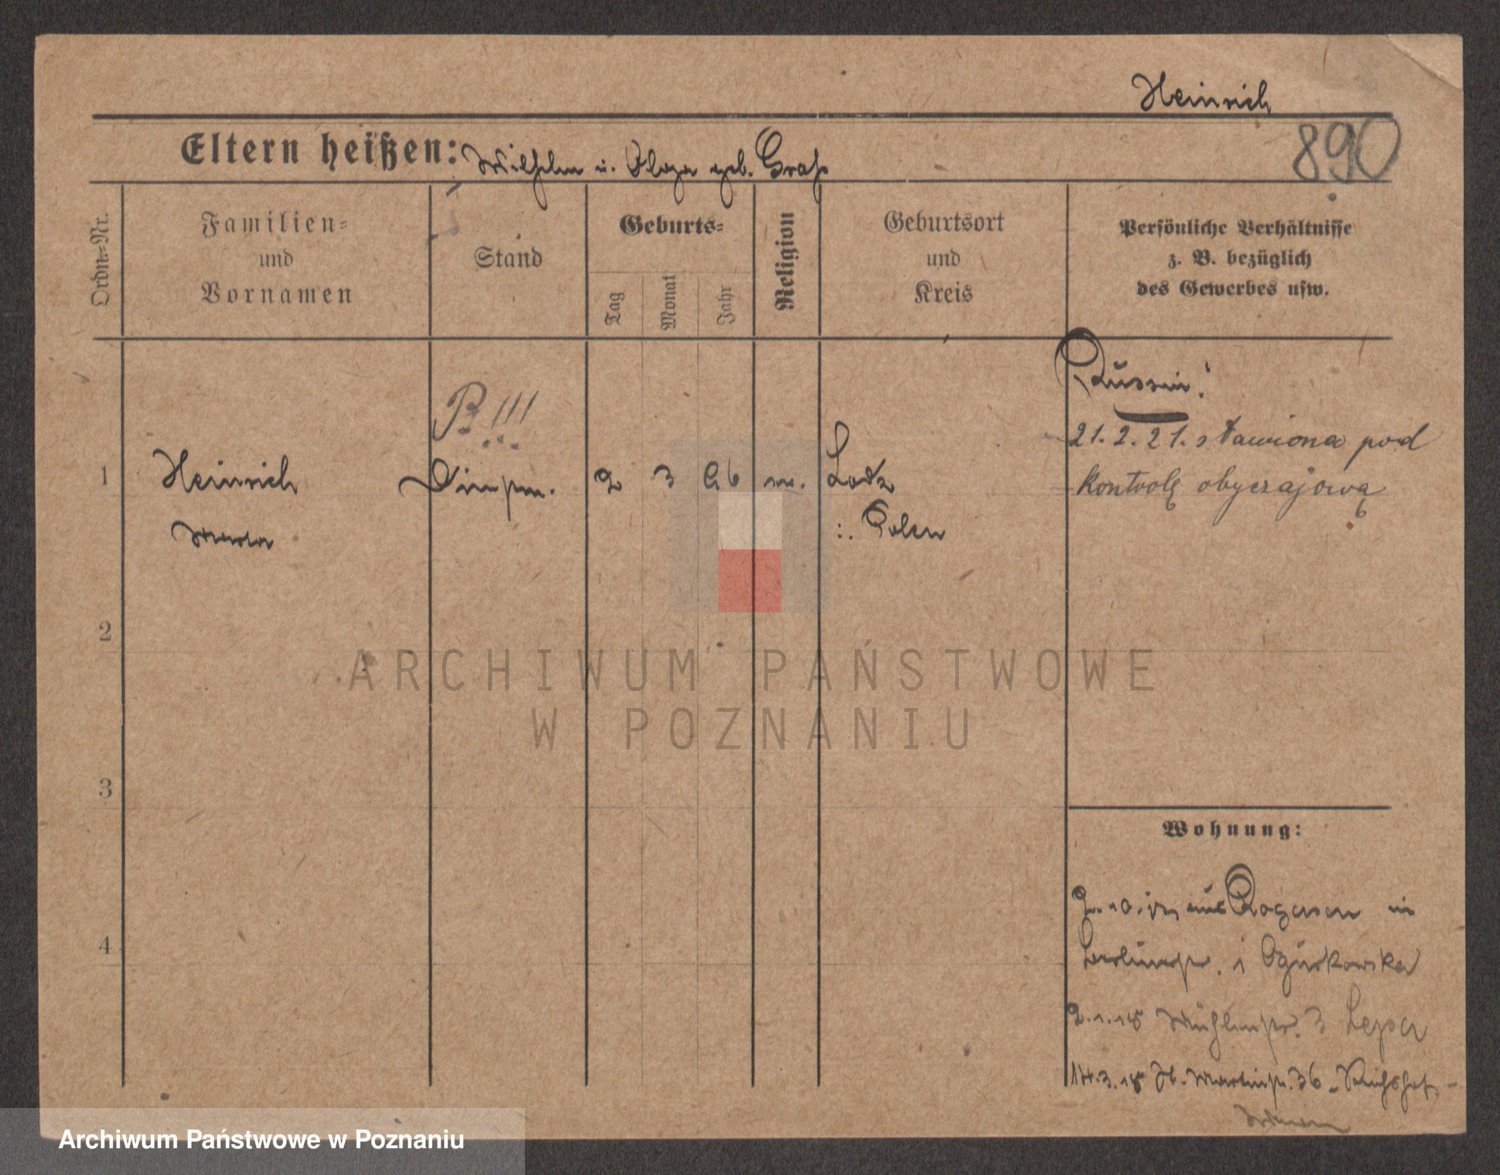 Heinrich
890
Eltern heißen: Wilhelm u. Olga geb. Graf
Ordn.-Nr.
Familien- und Vornamen
Stand
Geburts-
Tag
Monat
Jahr
Religion
Geburtsort und Kreis
Persönliche Verhältnisse
z. B. bezüglich
des Gewerbes usw.
Russin!
P !!!
21.2.21. stawiona pod
kontrolę obyczajową
1 Heinrich 2 3 96 Lodz
Marta
Polen
2
3
4
Wohnung:
2.10.17 aus Rogasen in
Berlinerstr. 1 Ogurkowska
2.1.18 Mühlenstr. 3
14.3.18 St. Martinstr. 36 Reichshof
ARCHIWUM PAŃSTWOWE
W POZNANIU
Archiwum Państwowe w Poznaniu